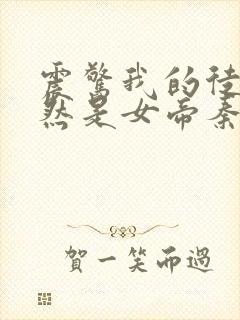 震驚我的徒
然是女帝秦
賀一笑而過